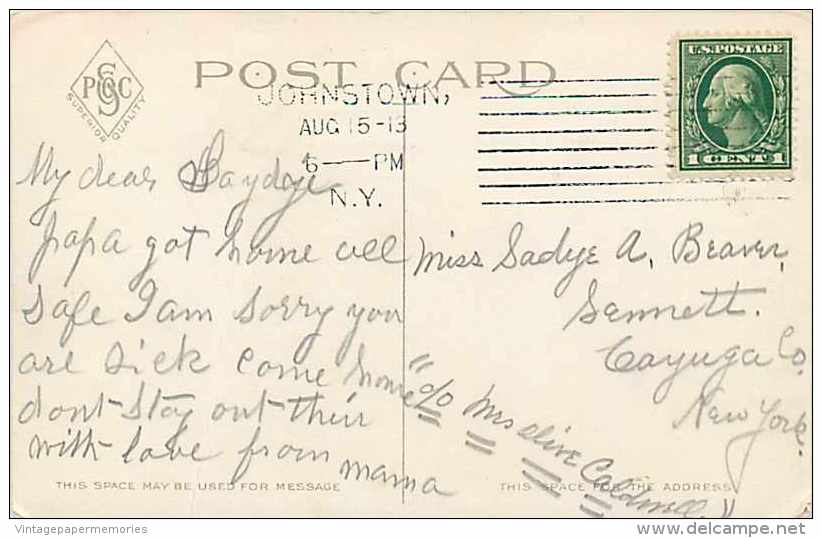 PGSC
SUPERIOR QUALITY
POST CARD
U.S. POSTAGE
1 CENT 1
JOHNSTOWN,
AUG 15-13
6—PM
N.Y.
My dear Saydeje
papa got home all
safe I am sorry you
are sick come home
dont stay out their
with love from
mama
THIS SPACE MAY BE USED FOR MESSAGE
Miss Sadye A, Beaver,
Sennett.
Cayuga Co,
New York.
"c/o Mrs Olive Caldwell"
THIS SPACE FOR THE ADDRESS
Vintagepapermemories
http://www.delcampe.net